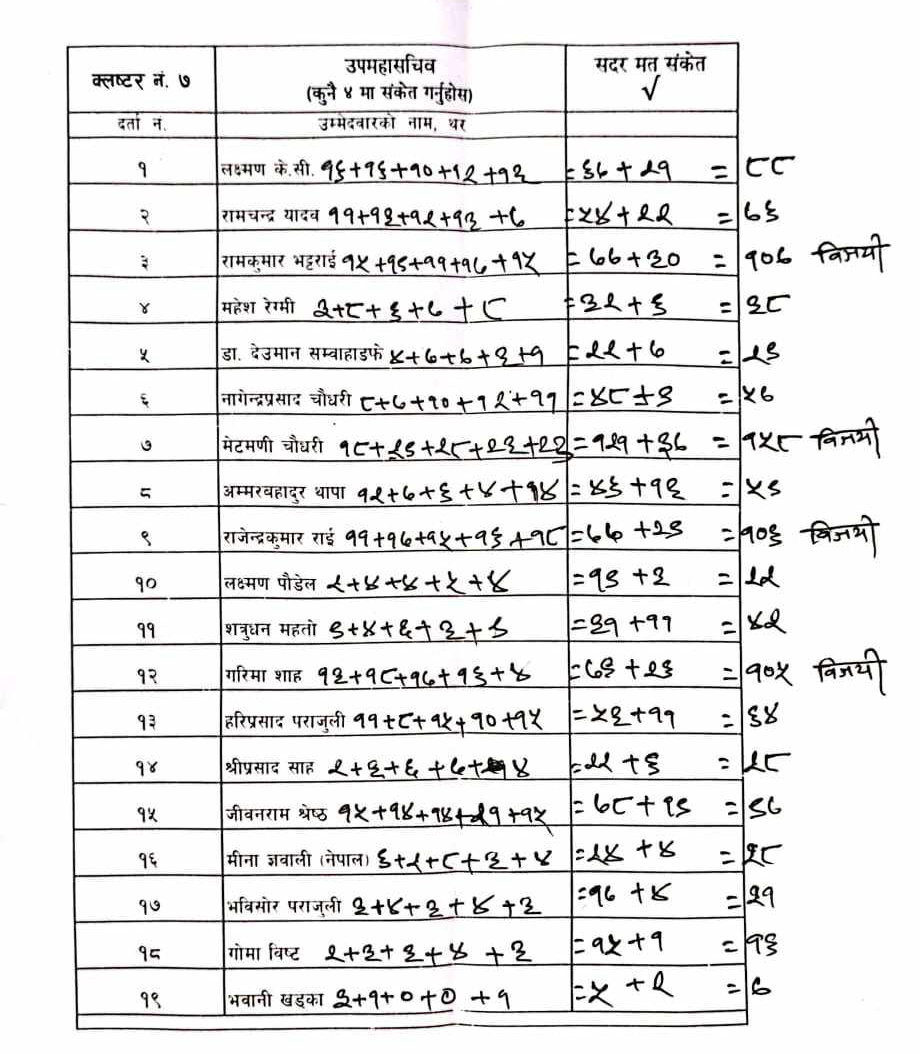 क्लष्टर नं. ७
उपमहासचिव
(कुनै ४ मा संकेत गर्नुहोस)
सदर मत संकेत
√
दर्ता नं. उम्मेदवारको नाम, थर
१ लक्ष्मण के.सी. १६+१६+१०+१२+१३ =६७+२१ = ८८
२ रामचन्द्र यादव ११+१३+१२+१३+७ =५४+२२ = ७६
३ रामकुमार भट्टराई १५+१९+११+१७+१५ =७७+३० = १०७ विजयी
४ महेश रेग्मी ३+८+६+७+८ =३२+६ = ३८
५ डा. देउमान सम्वाहाङफे ४+७+७+३+१ =२२+७ = २९
६ नागेन्द्रप्रसाद चौधरी ८+७+१०+१२+११ =४८+९ = ५७
७ मेटमणी चौधरी १८+२९+२८+२३+२३ =१२१+३७ = १५८ विजयी
८ अम्मरवहादुर थापा १२+७+६+४+१४ =४३+१६ = ५९
९ राजेन्द्रकुमार राई ११+१७+१५+१६+१८ =७७+२९ = १०६ विजयी
१० लक्ष्मण पौडेल २+४+४+५+४ =१९+३ = २२
११ शत्रुधन महतो ९+४+६+३+९ =३१+११ = ४२
१२ गरिमा शाह १३+१८+१७+१६+४ =७६+२९ = १०५ विजयी
१३ हरिप्रसाद पराजुली ११+८+१२+१०+१२ =५३+११ = ६४
१४ श्रीप्रसाद साह २+३+६+७+४ =२२+६ = २८
१५ जीवनराम श्रेष्ठ १५+१४+१४+२१+१४ =७८+१९ = ९७
१६ मीना ज्ञवाली (नेपाल) ६+२+८+३+५ =२४+४ = २८
१७ भविसोर पराजुली ३+४+३+४+३ =१७+४ = २१
१८ गोमा विष्ट २+३+३+४+३ =१५+१ = १६
१९ भवानी खड्का ३+१+०+०+१ =५+२ = ७